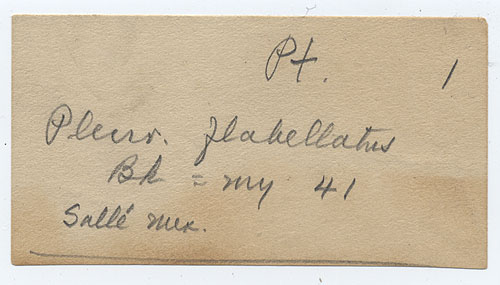 Pt. 1
Pleur. flabellatus
Bk = my 41
Sallé Mex.